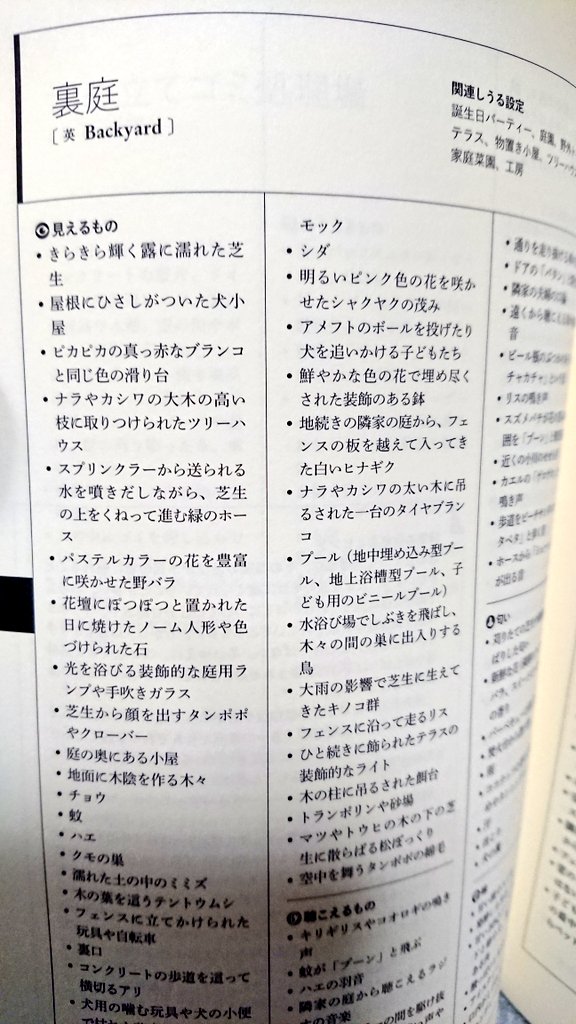 裏庭
[英 Backyard]
関連しうる設定
誕生日パーティー、庭園、野外
テラス、物置き小屋、ツリーハウ
家庭菜園、工房
見えるもの
• きらきら輝く露に濡れた芝
生
• 屋根にひさしがついた犬小
屋
• ピカピカの真っ赤なブランコ
と同じ色の滑り台
• ナラやカシワの大木の高い
枝に取りつけられたツリーハ
ウス
• スプリンクラーから送られる
水を噴きだしながら、芝生
の上をくねって進む緑のホー
ス
• パステルカラーの花を豊富
に咲かせた野バラ
• 花壇にぽつぽつと置かれた
日に焼けたノーム人形や色
づけられた石
• 光を浴びる装飾的な庭用ラ
ンプや手吹きガラス
• 芝生から顔を出すタンポポ
やクローバー
• 庭の奥にある小屋
• 地面に木陰を作る木々
• チョウ
• 蚊
• ハエ
• クモの巣
• 濡れた土の中のミミズ
• 木の葉を這うテントウムシ
• フェンスに立てかけられた
玩具や自転車
• 裏口
• コンクリートの歩道を這って
横切るアリ
• 犬用の噛む玩具や犬の小便
モック
• シダ
• 明るいピンク色の花を咲か
せたシャクヤクの茂み
• アメフトのボールを投げたり
犬を追いかける子どもたち
• 鮮やかな色の花で埋め尽く
された装飾のある鉢
• 地続きの隣家の庭から、フェ
ンスの板を越えて入ってき
た白いヒナギク
• ナラやカシワの太い木に吊
るされた一台のタイヤブラン
コ
• プール（地中埋め込み型プー
ル、地上浴槽型プール、子
ども用のビニールプール）
• 水浴び場でしぶきを飛ばし、
木々の間の巣に出入りする
鳥
• 大雨の影響で芝生に生えて
きたキノコ群
• フェンスに沿って走るリス
• ひと続きに飾られたテラスの
装飾的なライト
• 木の柱に吊るされた餌台
• トランポリンや砂場
• マツやトウヒの木の下の芝
生に散らばる松ぼっくり
• 空中を舞うタンポポの綿毛
聴こえるもの
• キリギリスやコオロギの鳴き
声
• 蚊が「ブーン」と飛ぶ
• ハエの羽音
• 隣家の庭から聴こえるラジ
オの音楽
の間を駆け抜
• ドアの「バタン」
• 隣家の夫婦の
• 遠くから聴こえる
音
• リスの鳴き声
• スズメバチが花の
囲を「ブーン」と
• 近くの小川の
• カエルの
鳴き声
• ホースから
が出る音
匂い